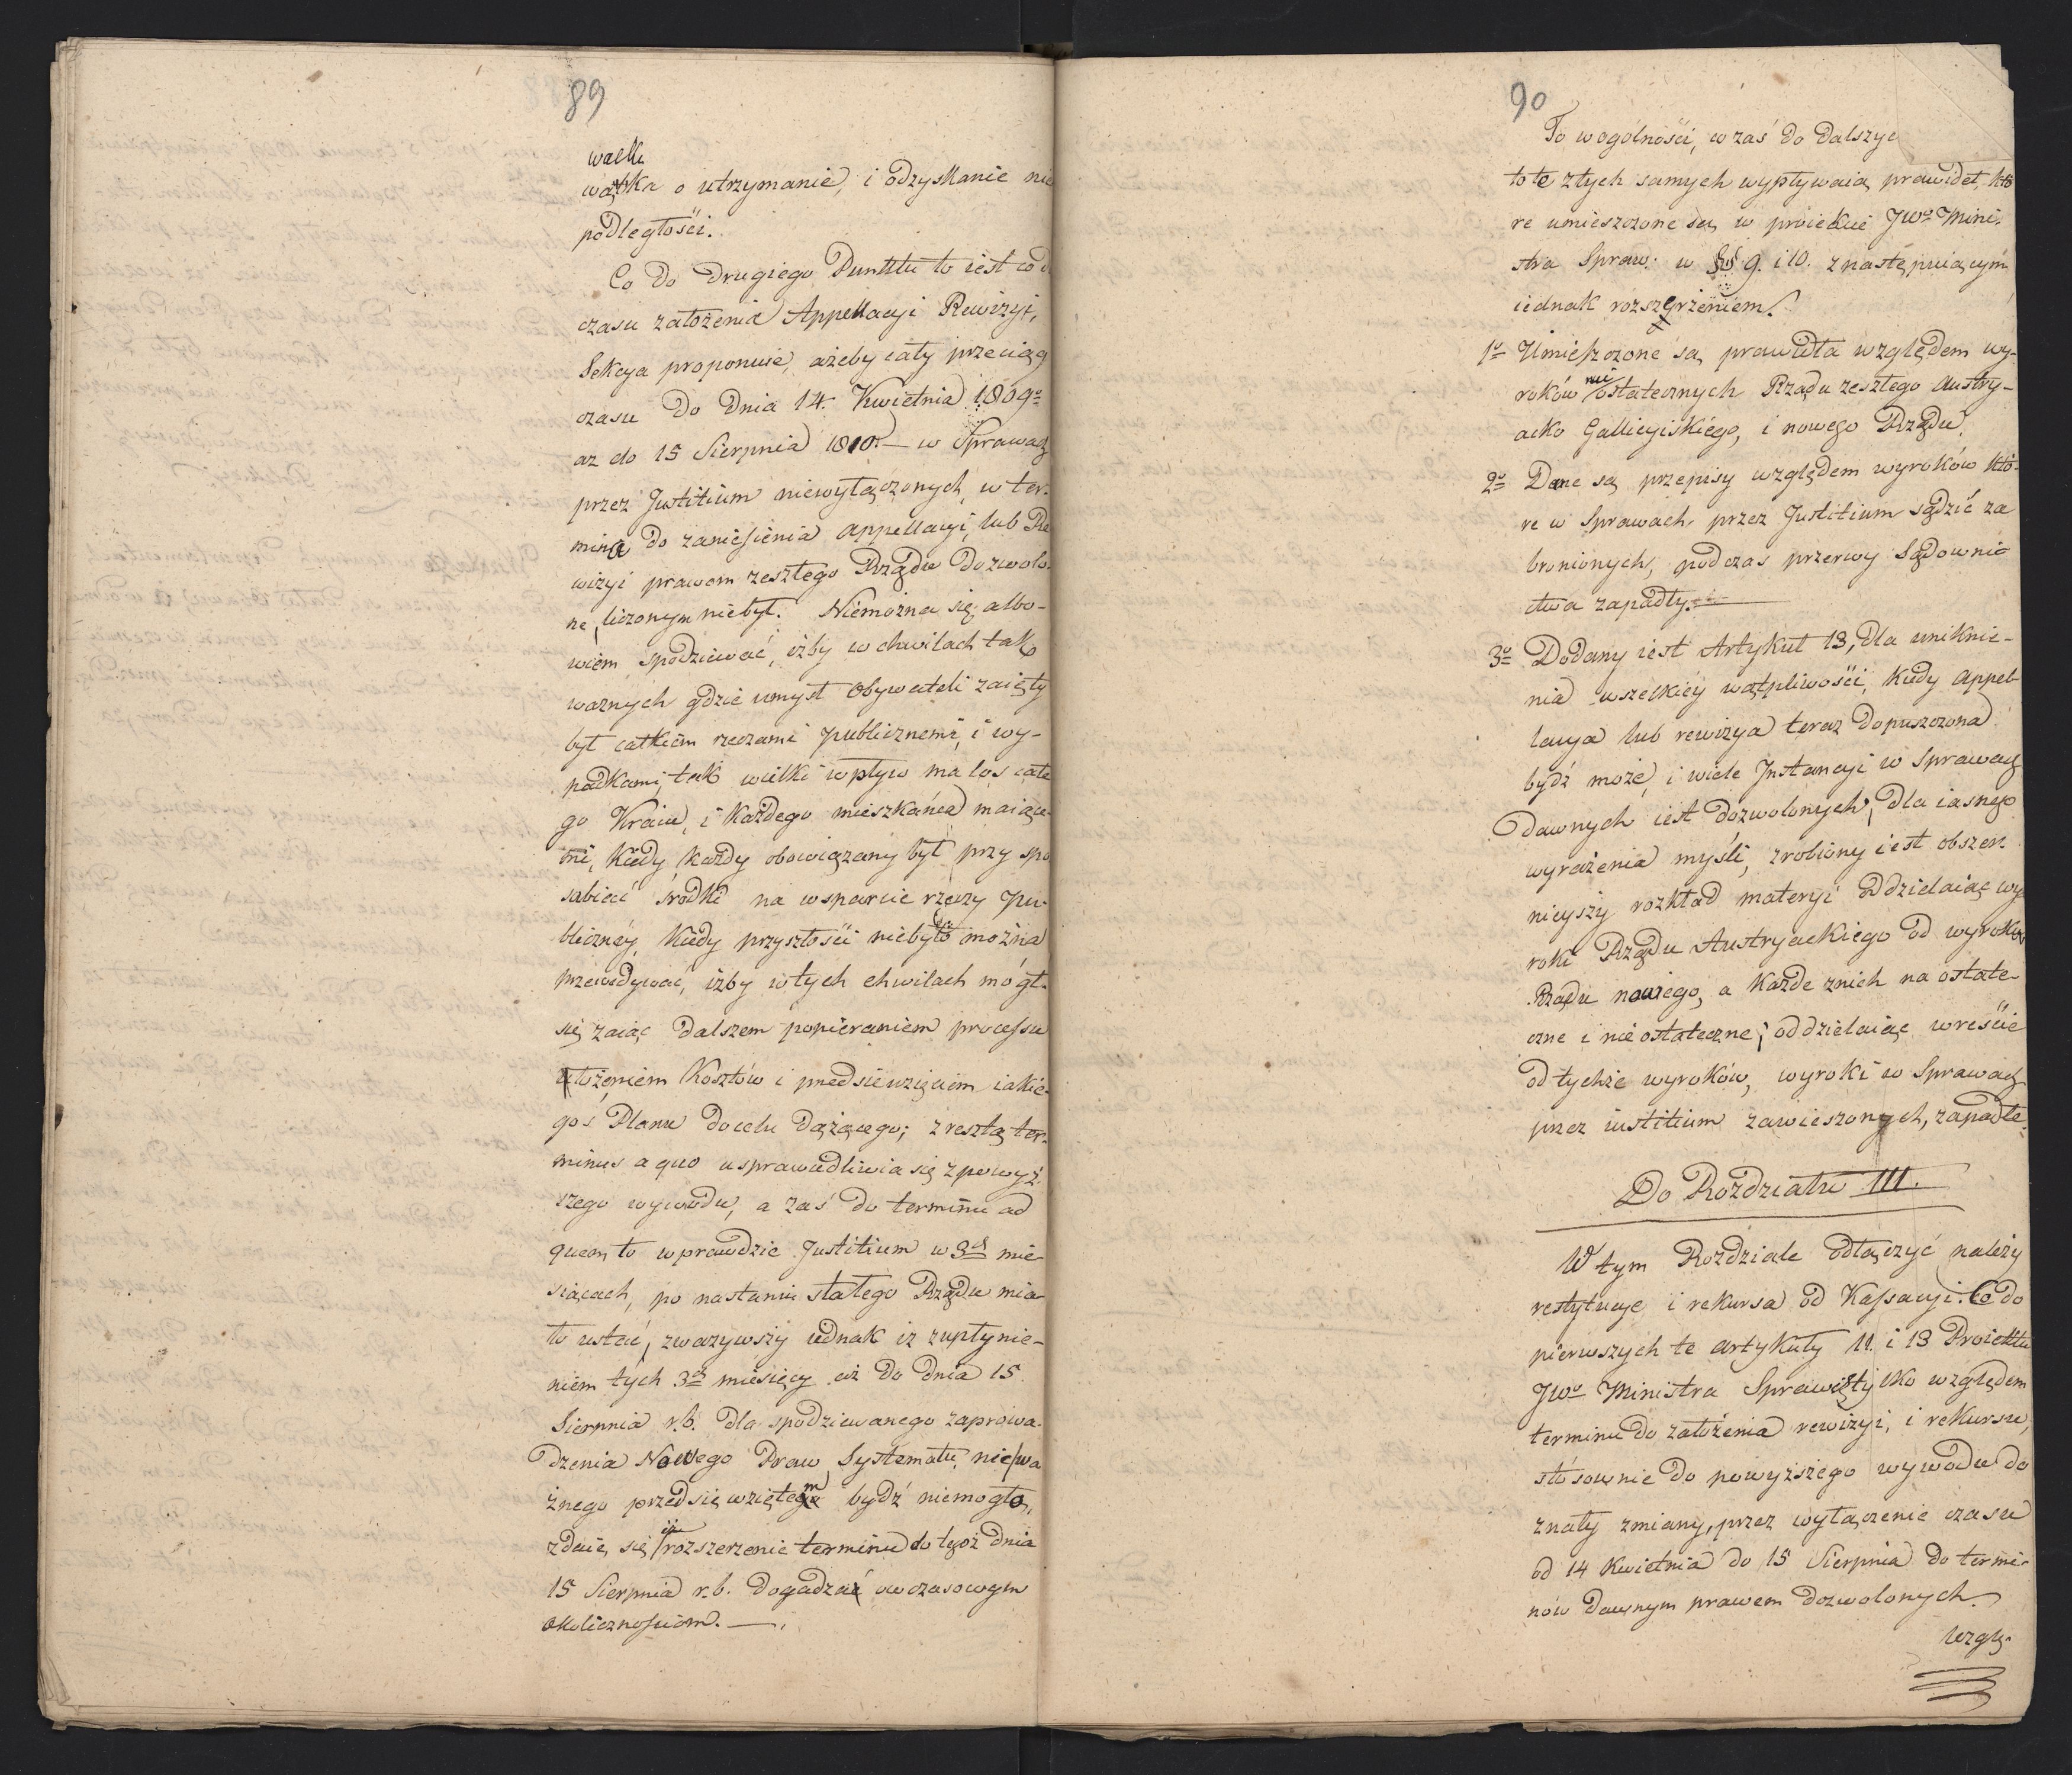 89
walka
wałka o utrzymanie, i odzyskanie nie
podległości.
Co do drugiego Punktu to iest co d
czasu założenia Appellacyi Rewizyi,
Sekcya proponuie, ażeby cały przeciąg
czasu do dnia 14. Kwietnia 1809o
az do 15 Sierpnia 1810. — w Sprawach
przez Justitium niewyłączonych, w ter-
mina do zaniesienia appellacyi, lub Re
wizyi prawem zeszłego Rządu dozwolo-
ne, liczonym niebył. Niemożna się albo-
wiem spodziewać, iżby w chwilach tak
ważnych gdzie umysł Obywateli zaięty
był całkiem rzeczami publicznemi, i wy-
padkami, tak wielki wpływ na los całe
go Kraiu, i każdego mieszkańca maiące-
mi, kiedy każdy obowiązany był przy spo
sabiać środki na wsparcie rzeczy pu-
bliczney, kiedy przyszłości niebyło można
przewidywać, iżby w tych chwilach mógł
się zaiąć dalszem popieraniem processu
ułożeniem kosztów i przedsiewzięciem iakie-
goś Planu do celu dążącego; zresztą ter-
minus a quo usprawiedliwia się z powyż-
szego wywodu, a zaś do terminu ad
quem, to wprawdzie Justitium w 3ch mie-
siącach, po nastaniu stałego Rządu mia-
ło ustać, zważywszy iednak iż z upłynie-
niem tych 3ch miesięcy aż do dnia 15
Sierpnia r.b. dla spodziewanego zaprowa-
dzenia Nowego Praw Systematu, nic wa
żnego przedsięwziętem bydź niemogło,
zdaie się iż rozszerzenie terminu do tegoż dnia
15 Sierpnia r.b. dogadzać owczasowym
okolicznościom. —
90
To w ogólności, w zaś do dalszyc
to te z tych samych wypływaią prawideł, któ
re umieszczone są w proiekcie JWo Mini-
stra Spraw: w §§ 9. i 10. z następuiącym
iednak rozszerzeniem.
1o Umieszczone są prawidła względem wy-
roków nie ostatecznych Rządu zeszłego Austry-
acko Gallicyiskiégo, i nowego Rządu.
2o Dane są przepisy względem wyroków któ-
re w Sprawach przez Justitium sądzić za
bronionych, podczas przerwy Sądownic
ctwa zapadły. —
3o Dodany iest Artykuł 13, dla uniknie-
nia wszelkiéy wątpliwości, kiedy appel-
lacya lub rewizya teraz dopuszczona
bydź może, i wiele Instancyi w Sprawach
dawnych iest dozwolonych; dla iasnego
wyrażenia myśli, zrobiony iest obszer-
nieyszy rozkład materyi oddzielaiąc wy
roki Rządu Austryackiego od wyroków
Rządu nowego, a każde z nich na ostate-
czne i nieostateczne; oddzielaiąc wreście
od tychże wyroków, wyroki w Sprawach
przez iustitium zawieszonych, zapadłe.
Do Rozdziału III.
W tym Rozdziale odłączyć należy
restytucye i rekursa od Kassacyi. Co do
pierwszych te artykuły 11. i 13 Proiektu
JWo Ministra Sprawiedty lko względem
terminu do założenia rewizyi, i rekursu,
stósownie do powyższego wywodu do
znały zmiany, przez wyłączenie czasu
od 14 Kwietnia do 15 Sierpnia do termi-
nów dawnym prawem dozwolonych.
Wzglę-